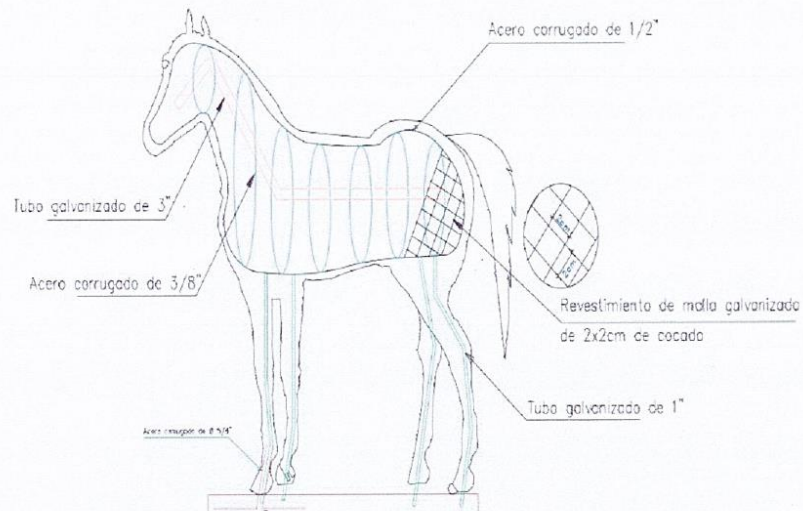 Acero corrugado de 1/2"
Tubo galvanizado de 3"
Acero corrugado de 3/8"
2cm
2cm
Revestimiento de malla galvanizada
de 2x2cm de cocado
Tubo galvanizado de 1"
Acero corrugado de Ø 3/4"